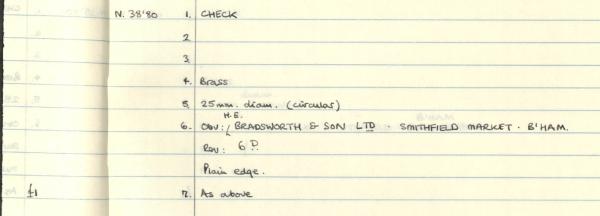 N. 38'80 1. CHECK
2
3.
4. Brass
5. 25mm. diam. (circular)
H.E.
6. Obv: BRADSWORTH & SON LTD · SMITHFIELD MARKET · B'HAM.
Rev: 6D.
Plain edge.
£1 7. As above